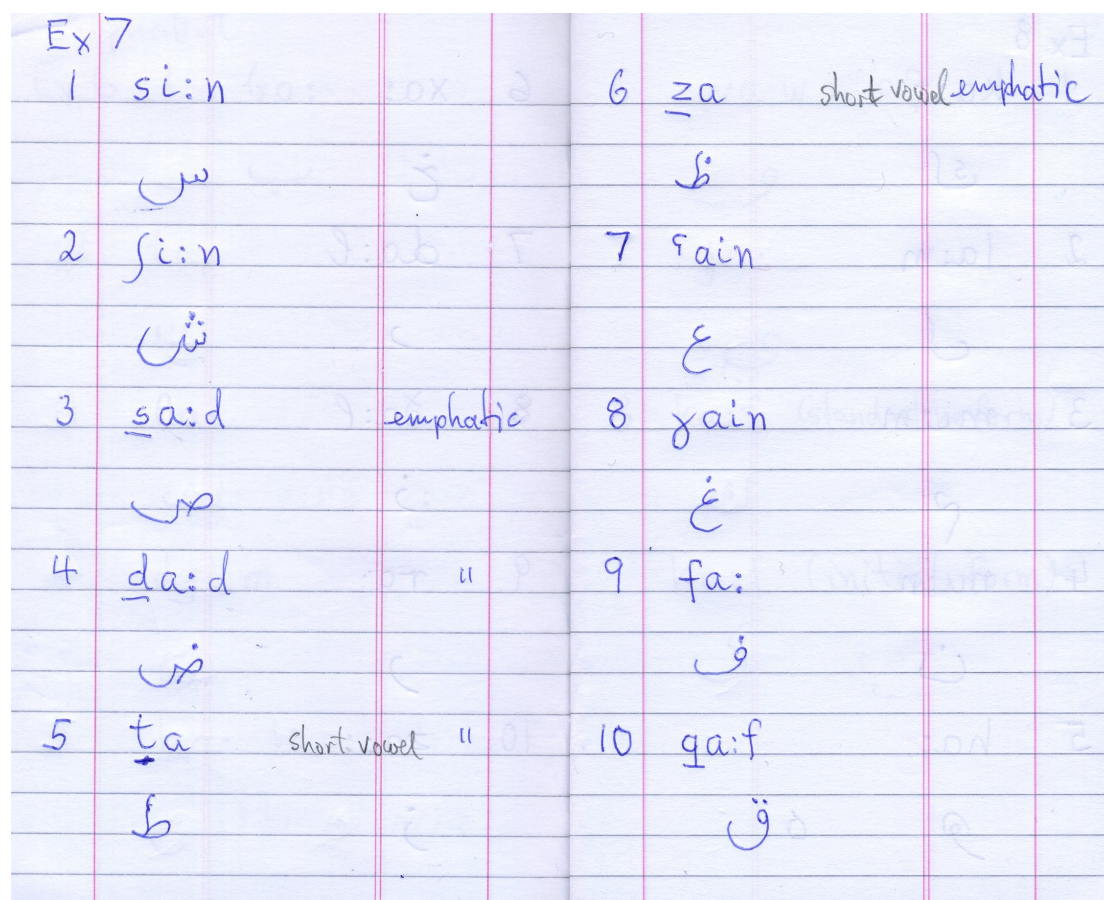 Ex 7
1 si:n
س
2 ʃi:n
ش
3 s̲a:d emphatic
ص
4 d̲a:d "
ض
5 t̲a short vowel "
ط
6 z̲a short vowel emphatic
ظ
7 ʕain
ع
8 ɣain
غ
9 fa:
ف
10 q̲a:f
ق